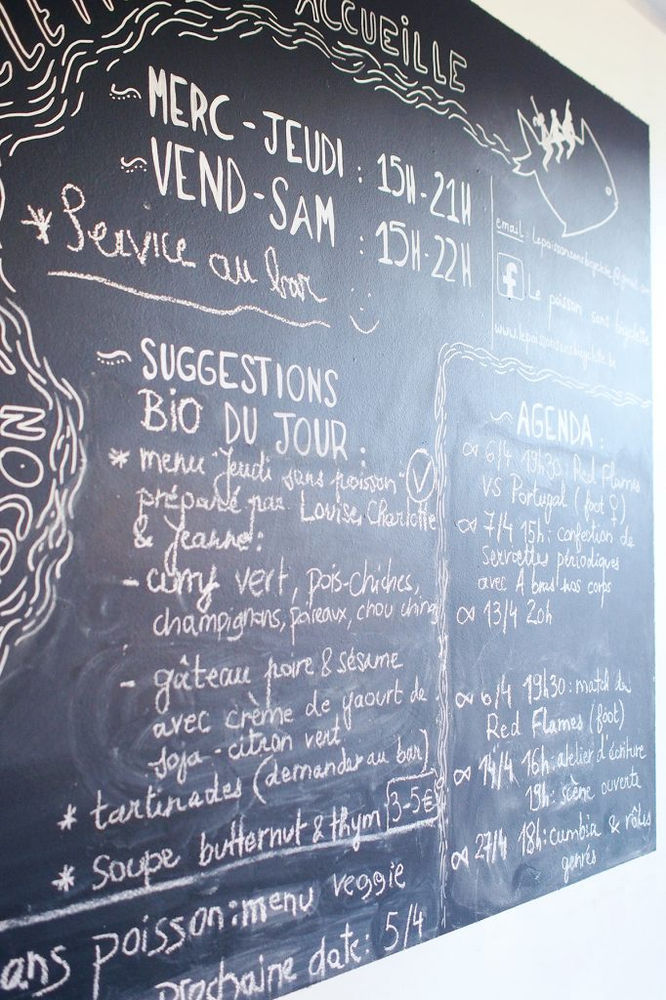 ACCUEILLE
MERC-JEUDI : 15H-21H
VEND-SAM : 15H-22H
* Service au bar
email: lepoissonsansbicyclette@gmail.com
f Le poisson sans bicyclette
www.lepoissonsansbicyclette.be
SUGGESTIONS
BIO DU JOUR :
* menu "Jeudi sans poisson" V
préparé par Louise, Charlotte
& Jeanne:
- curry vert, pois-chiches,
champignons, poireaux, chou chinois
- gâteau poire & sésame
avec crème de yaourt de
soja - citron vert
* tartinades (demander au bar)
* Soupe butternut & thym 3-5€
ans poisson: menu veggie
prochaine date: 5/4
AGENDA :
6/4 19h30: Red Flames
VS Portugal (foot ♀)
7/4 15h: confection de
serviettes périodiques
avec A bras nos corps
13/4 20h
6/4 19h30: match des
Red Flames (foot)
14/4 16h: atelier d'écriture
19h: scène ouverte
27/4 18h: cumbia & rôles
genrés